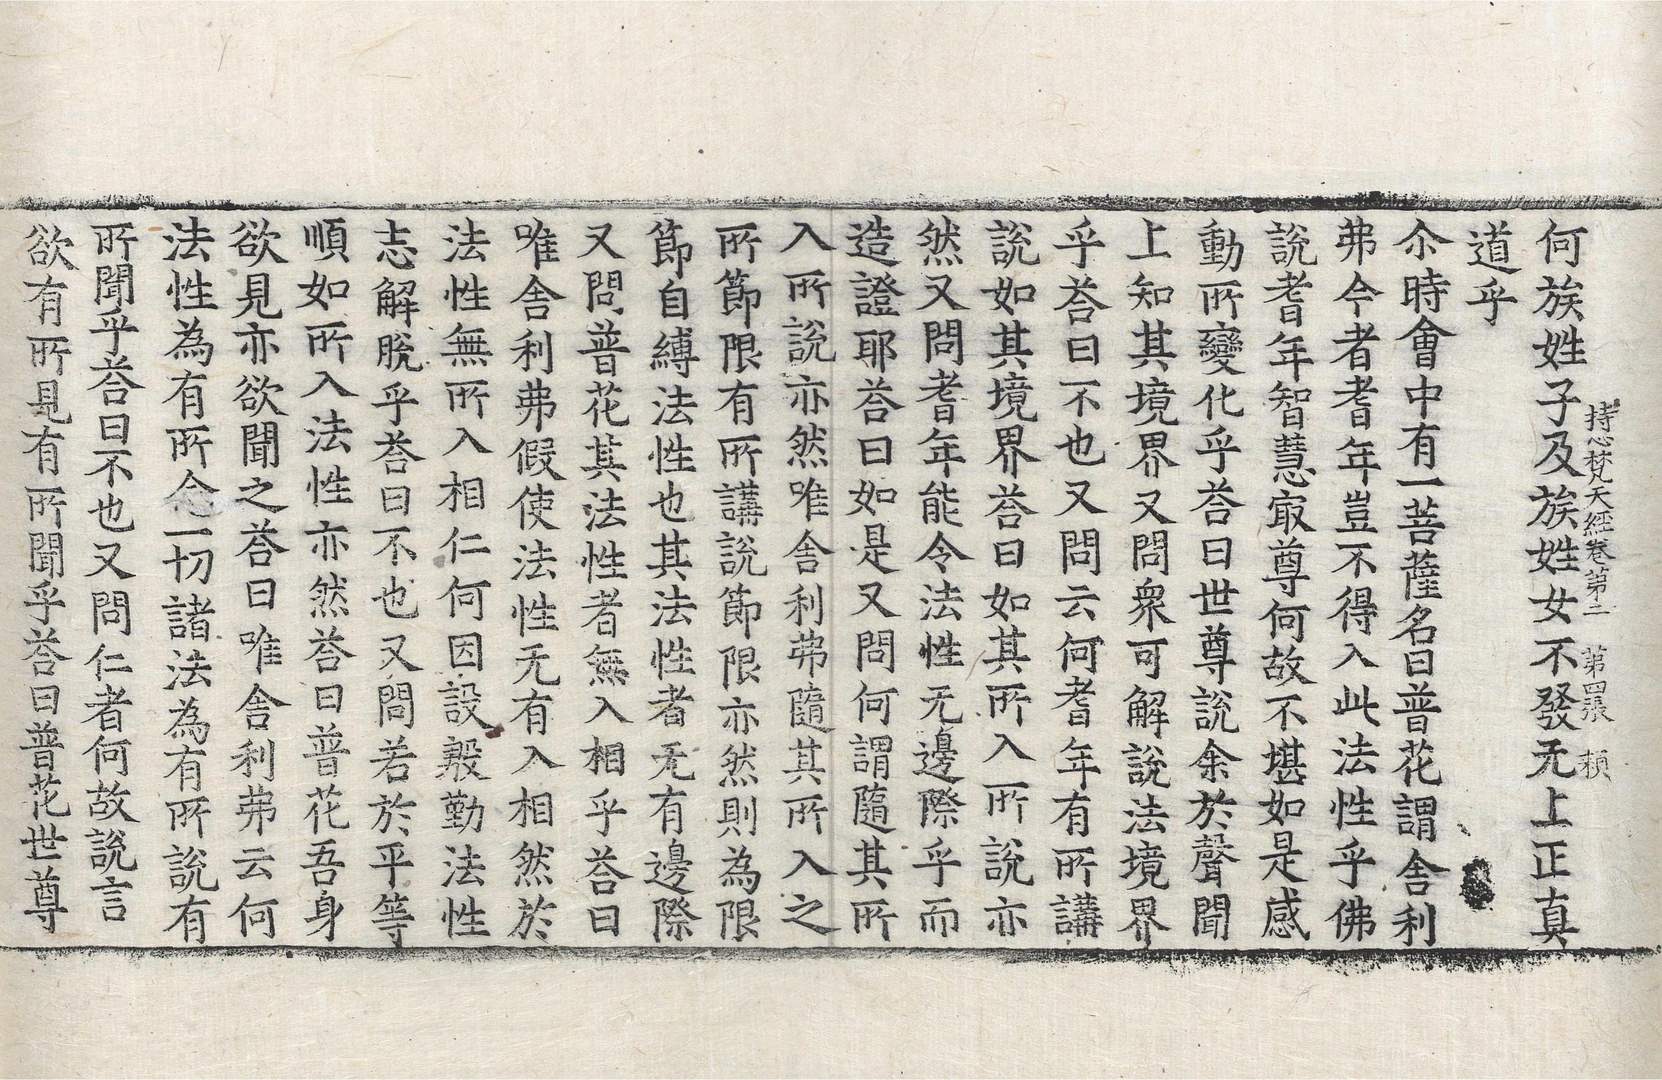 持心梵天經卷第二　第四張　頛
何族姓子及族姓女不發无上正真
道乎
尒時會中有一菩薩名曰普花謂舍利
弗今者耆年豈不得入此法性乎佛
說耆年智慧㝡尊何故不堪如是感
動所變化乎荅曰世尊說余於聲聞
上知其境界又問衆可解說法境界
乎荅曰不也又問云何耆年有所講
說如其境界荅曰如其所入所說亦
然又問耆年能令法性无邊際乎而
造證耶荅曰如是又問何謂隨其所
入所說亦然唯舍利弗隨其所入之
所節限有所講說節限亦然則為限
節自縛法性也其法性者无有邊際
又問普花其法性者無入相乎荅曰
唯舍利弗假使法性无有入相然於
法性無所入相仁何因設殺勤法性
志解脫乎荅曰不也又問若於平等
順如所入法性亦然荅曰普花吾身
欲見亦欲聞之荅曰唯舍利弗云何
法性為有所念一切諸法為有所說有
所聞乎荅曰不也又問仁者何故說言
欲有所見有所聞乎荅曰普花世尊